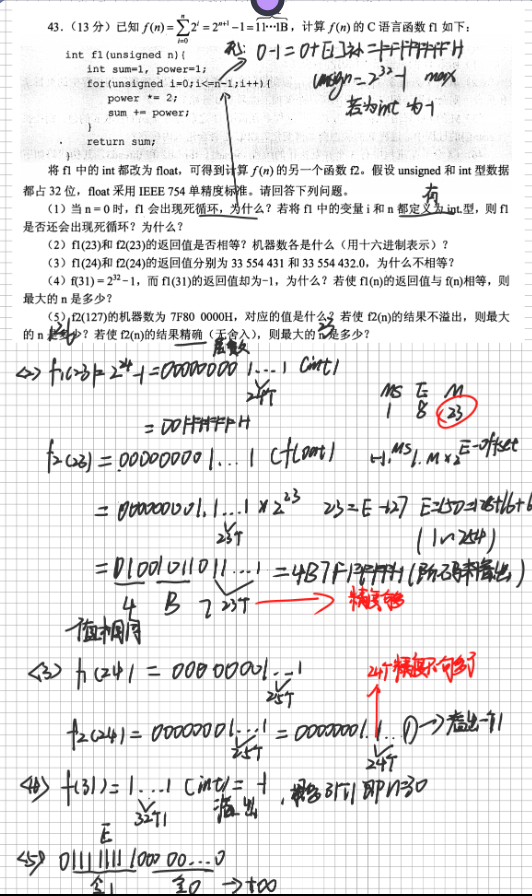 43.（13 分）已知 f(n)=∑2^i=2^{n+1}-1=11…1B，计算 f(n) 的 C 语言函数 f1 如下：
int f1(unsigned n){
int sum=1, power=1;
for(unsigned i=0;i<=n-1;i++){
power *= 2;
sum += power;
}
return sum;
}
0-1=0+[-1]补=FFFFFFFFH
unsign=2^32-1 max
若为int 为-1
将 f1 中的 int 都改为 float，可得到计算 f(n) 的另一个函数 f2。假设 unsigned 和 int 型数据
都占 32 位，float 采用 IEEE 754 单精度标准。请回答下列问题。
（1）当 n=0 时，f1 会出现死循环，为什么？若将 f1 中的变量 i 和 n 都定义为 int 型，则 f1
是否还会出现死循环？为什么？
（2）f1(23)和 f2(23)的返回值是否相等？机器数各是什么（用十六进制表示）？
（3）f1(24)和 f2(24)的返回值分别为 33 554 431 和 33 554 432.0，为什么不相等？
（4）f(31)=2^32-1，而 f1(31)的返回值却为-1，为什么？若使 f1(n)的返回值与 f(n)相等，则
最大的 n 是多少？
（5）f2(127)的机器数为 7F80 0000H，对应的值是什么？若使 f2(n)的结果不溢出，则最大
的 n 是多少？若使 f2(n)的结果精确（无舍入），则最大的 n 是多少？
126
23
<2> f1(23)=2^24-1=00000000 1...1 (int)
24个
=00FFFFFFH
MS E M
1 8 23
f2(23)=00000000 1...1 (float)
(-1)^MS 1.M×2^{E-offset}
=00000000 1.1...1 × 2^23
23个
23=E-127 E=150=128+16+6
(1~254)
=01001011011...1 =4B7FFFFFH
4 B 7 23个
精度够
值相同
<3> f1(24)=00000001...1
25个
24个精度不够了
f2(24)=00000001...1=00000001.1...①→溢出一个1
25个
24个
<4> f(31)=1...1 (int)=-1
32个1
溢出
31个1 即n=30
E
<5> 01111111100000...0
全1 全0 →+∞